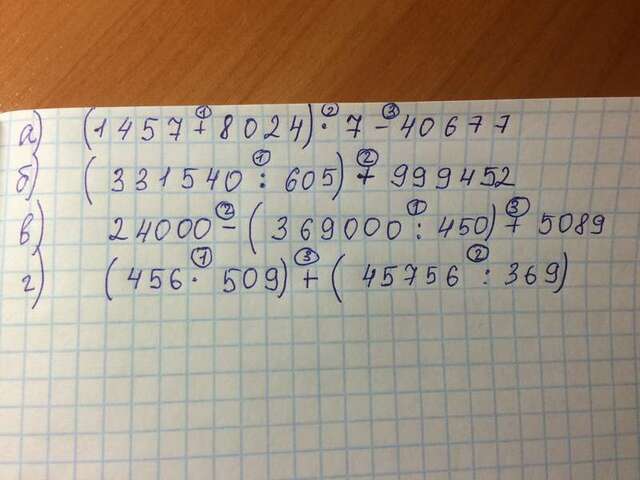 а) (1457+8024)·7-40677
б) (331540:605)+999452
в) 24000-(369000:450)+5089
г) (456·509)+(45756:369)